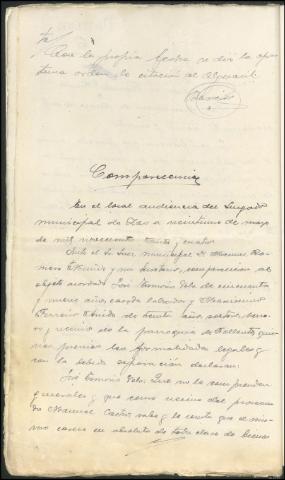 Con la propia fecha se dió la opor
tuna orden de citación al Alguacil.
Comparecencia
En el local audiencia del Juzgado
municipal de a veintiuno de mayo
de mil novecientos treinta y cuatro
Ante el Sr. Juez municipal D. Manuel Ra
mos y mi Secretario, comparecieron al
objeto acordado José de cincuenta
y nueve años, casado labrador y
Ferreiro de treinta años, soltero,
y vecino de la parroquia de quie
nes previas las formalidades legales y
con la debida separación declaran:
José Que no le comprenden
generales y que como vecino del procesa
do Manuel Castro sabe y le consta que el mis
mo carece en absoluto de toda clase de bienes